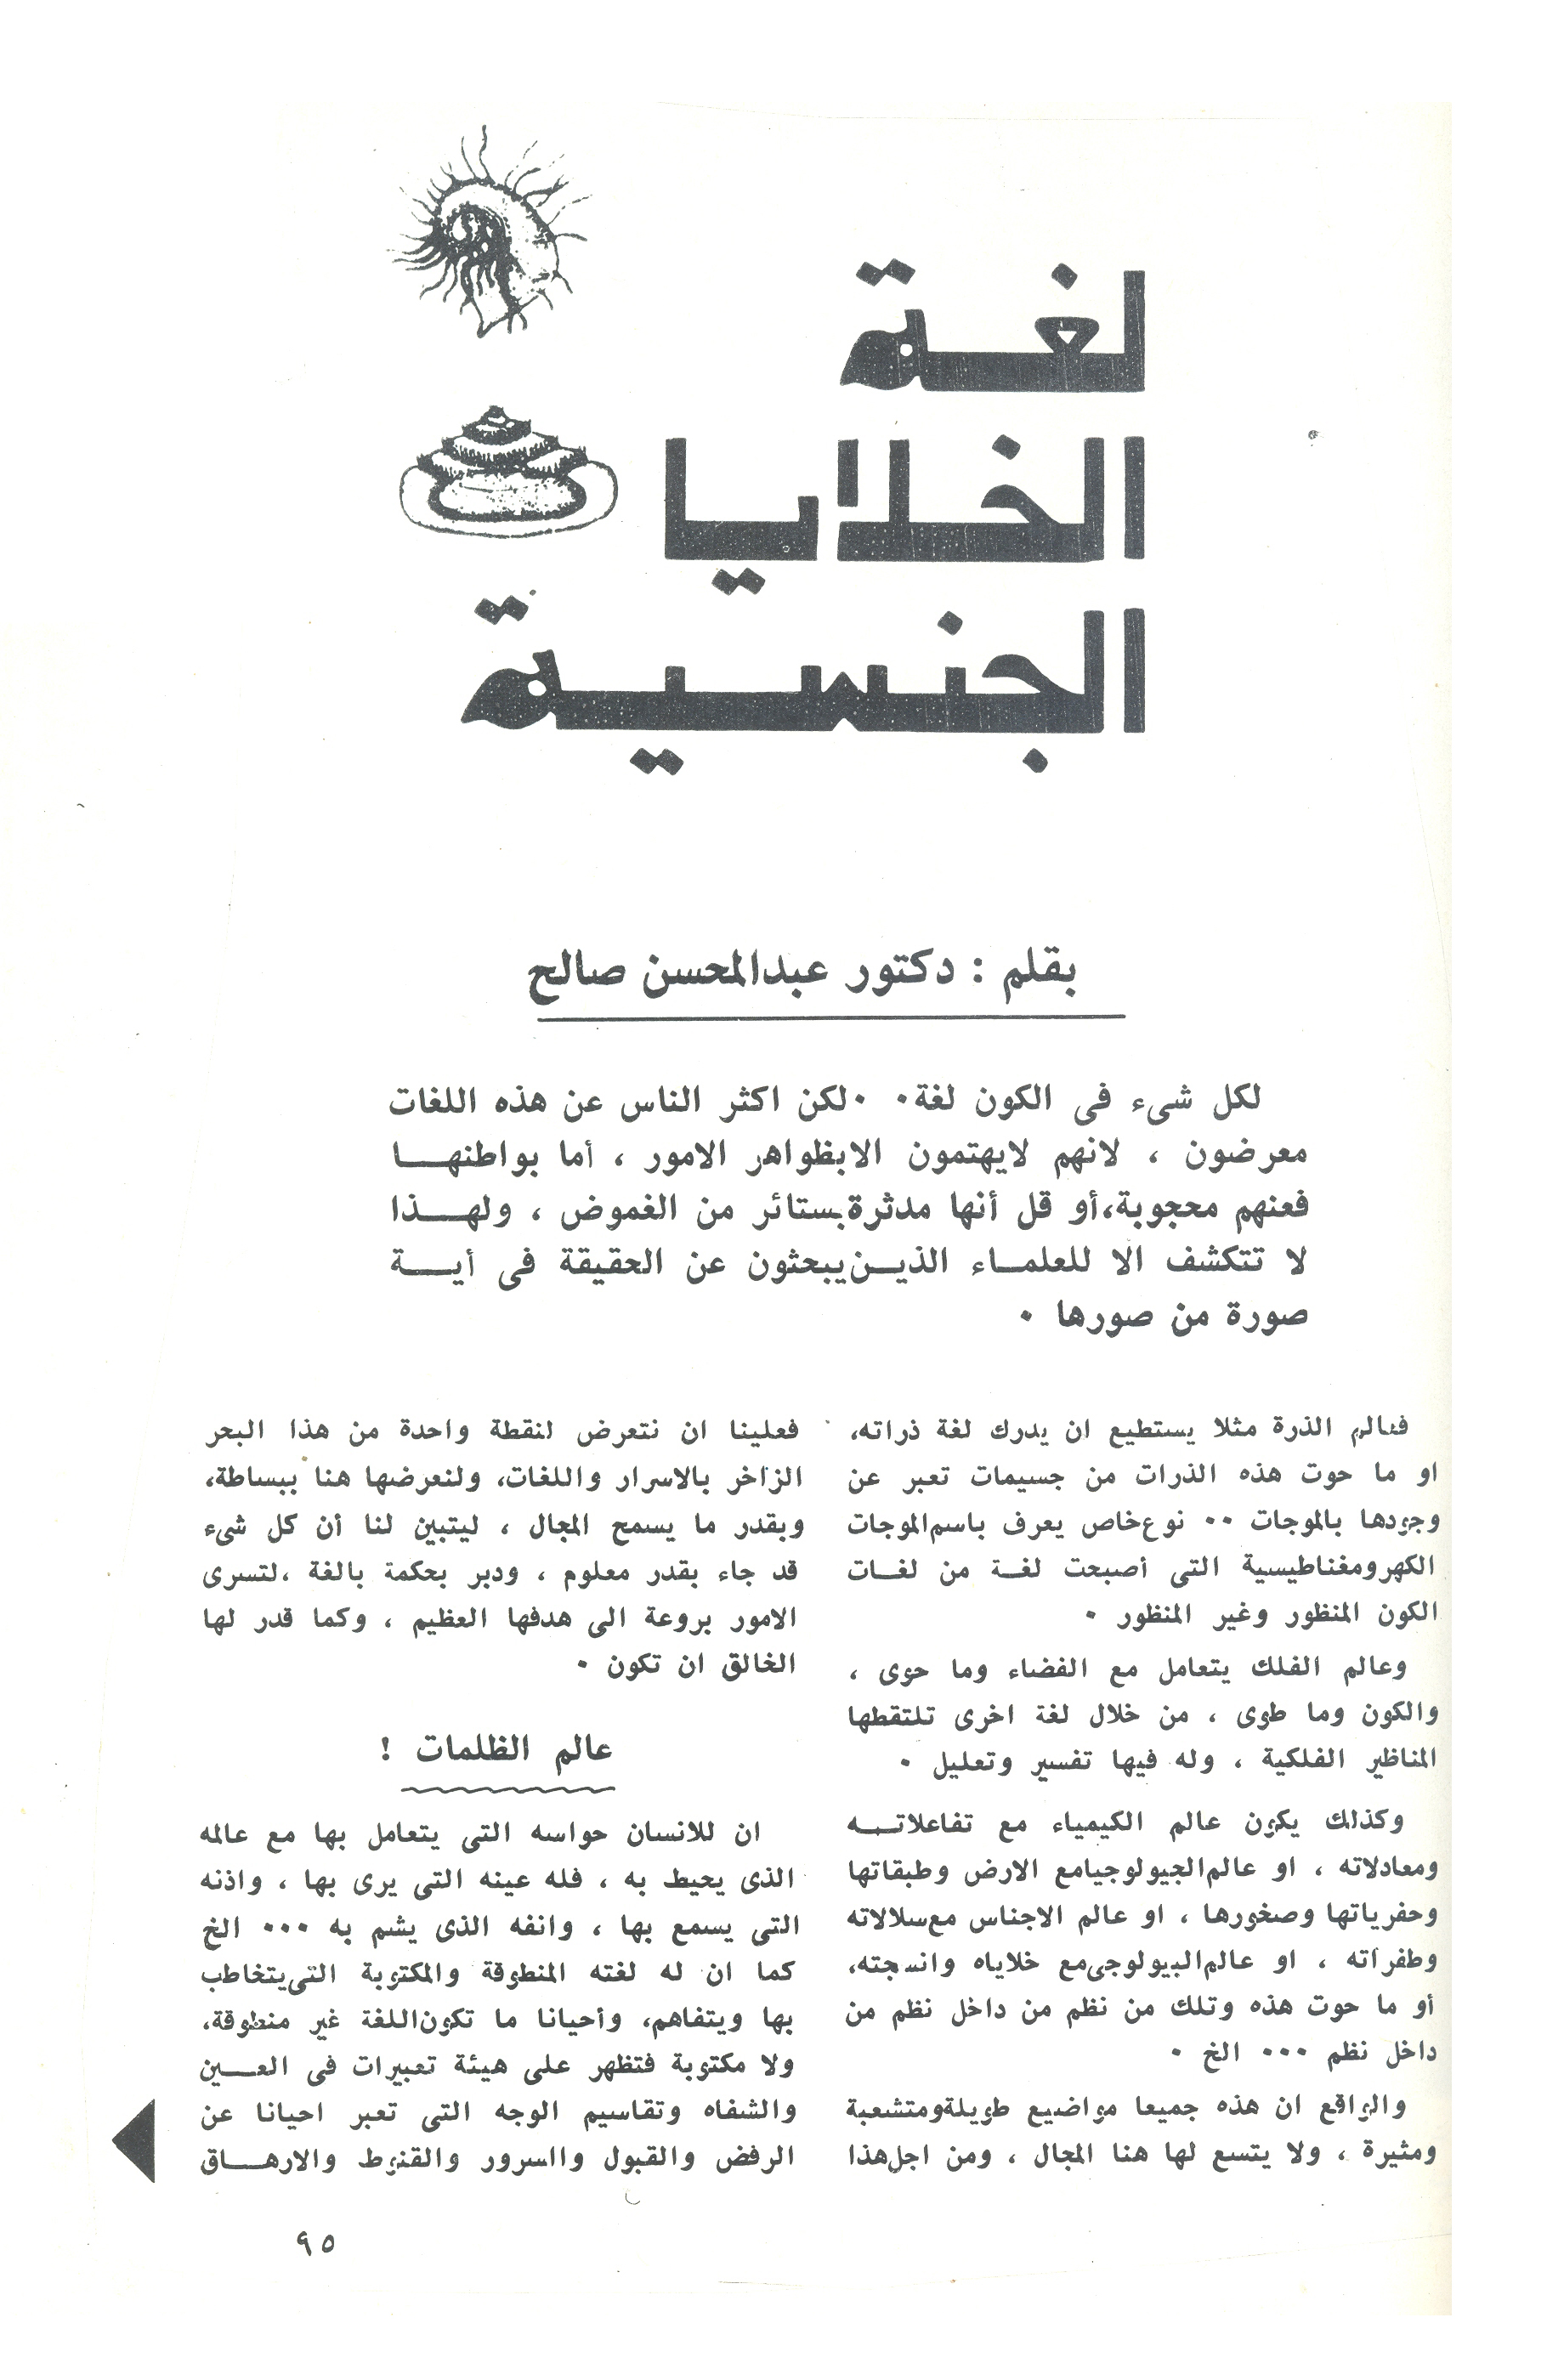 لغة
الخلايا
الجنسية
بقلم : دكتور عبدالمحسن صالح
لكل شىء فى الكون لغة٠ ٠لكن اكثر الناس عن هذه اللغات
معرضون ، لانهم لايهتمون الابظواهر الامور ، أما بواطنهـــا
فعنهم محجوبة،أو قل أنها مدثرةبستائر من الغموض ، ولهـــذا
لا تتكشف الا للعلمــاء الذيــن يبحثون عن الحقيقة فى أيـــة
صورة من صورها ٠
فعالم الذرة مثلا يستطيع ان يدرك لغة ذراته،
او ما حوت هذه الذرات من جسيمات تعبر عن
وجودها بالموجات ٠٠ نوع خاص يعرف باسم الموجات
الكهرومغناطيسية التى أصبحت لغــة من لغــات
الكون المنظور وغير المنظور ٠
وعالم الفلك يتعامل مع الفضاء وما حوى ،
والكون وما طوى ، من خلال لغة اخرى تلتقطها
المناظير الفلكية ، وله فيها تفسير وتعليل ٠
وكذلك يكون عالم الكيمياء مع تفاعلاتــه
ومعادلاته ، او عالم الجيولوجيا مع الارض وطبقاتها
وحفرياتها وصخورها ، او عالم الاجناس مع سلالاته
وطفراته ، او عالم البيولوجى مع خلاياه وانسجته،
أو ما حوت هذه وتلك من نظم من داخل نظم من
داخل نظم ٠٠٠ الخ ٠
والواقع ان هذه جميعا مواضيع طويلة ومتشعبة
ومثيرة ، ولا يتسع لها هنا المجال ، ومن اجل هذا
فعلينا ان نتعرض لنقطة واحدة من هذا البحر
الزاخر بالاسرار واللغات، ولنعرضها هنا ببساطة،
وبقدر ما يسمح المجال ، ليتبين لنا أن كل شىء
قد جاء بقدر معلوم ، ودبر بحكمة بالغة ،لتسرى
الامور بروعة الى هدفها العظيم ، وكما قدر لها
الخالق ان تكون ٠
عالم الظلمات !
ان للانسان حواسه التى يتعامل بها مع عالمه
الذى يحيط به ، فله عينه التى يرى بها ، واذنه
التى يسمع بها ، وانفه الذى يشم به ٠٠٠ الخ
كما ان له لغته المنطوقة والمكتوبة التى يتخاطب
بها ويتفاهم، وأحيانا ما تكون اللغة غير منطوقة،
ولا مكتوبة فتظهر على هيئة تعبيرات فى العـــين
والشفاه وتقاسيم الوجه التى تعبر احيانا عن
الرفض والقبول واالسرور والقنوط والارهـــاق
٩٥